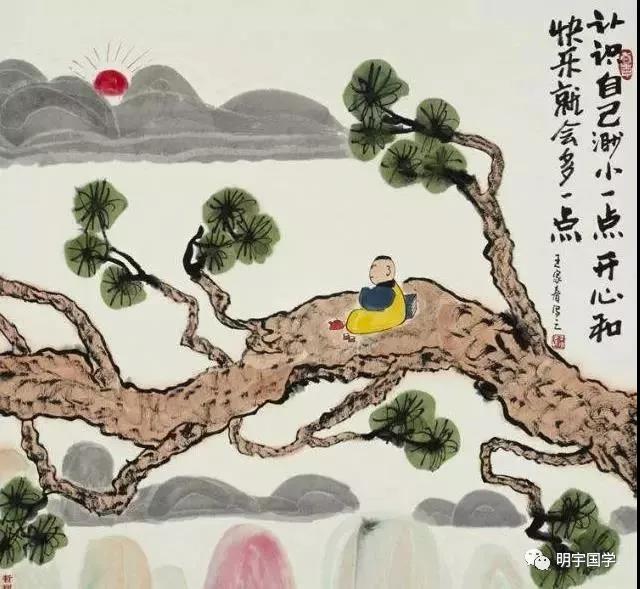 认识自己渺小一点开心和
快乐就会多一点
王家春写之
明宇国学